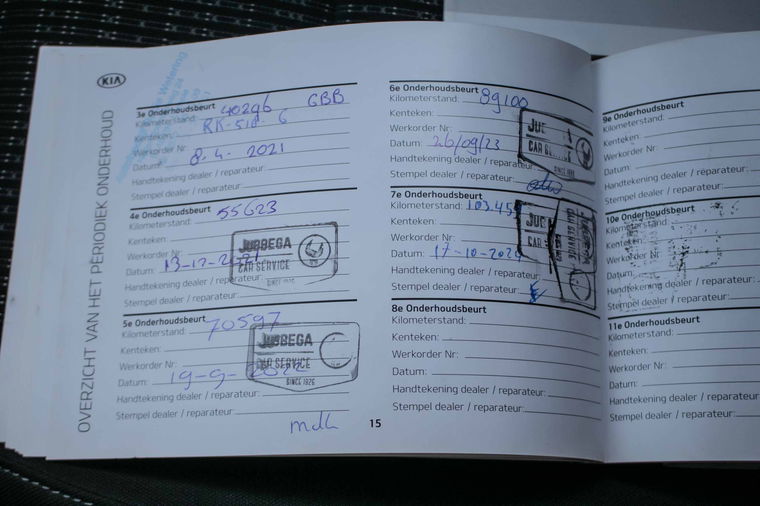 OVERZICHT VAN HET PERIODIEK ONDERHOUD
KIA
3e Onderhoudsbeurt
Kilometerstand: 40296 GBB
Kenteken: RK-518-G
Werkorder Nr:
Datum: 8-4-2021
Handtekening dealer / reparateur:
Stempel dealer / reparateur:
4e Onderhoudsbeurt
Kilometerstand: 55623
Kenteken:
Werkorder Nr:
Datum: 13-12-2021
Handtekening dealer / reparateur:
Stempel dealer / reparateur:
JUBBEGA
CAR SERVICE
SINCE 1926
5e Onderhoudsbeurt
Kilometerstand: 70597
Kenteken:
Werkorder Nr:
Datum: 19-9-2022
Handtekening dealer / reparateur:
Stempel dealer / reparateur:
JUBBEGA
CAR SERVICE
SINCE 1926
15
6e Onderhoudsbeurt
Kilometerstand: 89100
Kenteken:
Werkorder Nr:
Datum: 26/09/23
Handtekening dealer / reparateur:
Stempel dealer / reparateur:
CAR
SINCE 1926
7e Onderhoudsbeurt
Kilometerstand: 103.455
Kenteken:
Werkorder Nr:
Datum: 17-10-2024
Handtekening dealer / reparateur:
Stempel dealer / reparateur:
CAR SERVICE
8e Onderhoudsbeurt
Kilometerstand:
Kenteken:
Werkorder Nr:
Datum:
Handtekening dealer / reparateur:
Stempel dealer / reparateur:
9e Onderhoudsbeurt
Kilometerstand:
Kenteken:
Werkorder Nr:
Datum:
Handtekening dealer / reparateur:
Stempel dealer / reparateur:
10e Onderhoudsbeurt
Kilometerstand:
Kenteken:
Werkorder Nr:
Datum:
Handtekening dealer / reparateur:
Stempel dealer / reparateur:
11e Onderhoudsbeurt
Kilometerstand:
Kenteken:
Werkorder Nr:
Datum:
Handtekening dealer / reparateur:
Stempel dealer / reparateur: